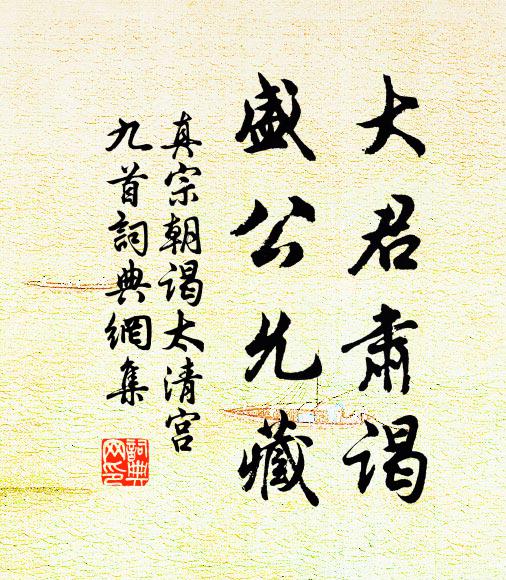 大君肅谒
盛公允藏
真宗朝谒太清宫
九首詞典網集
詞典网印